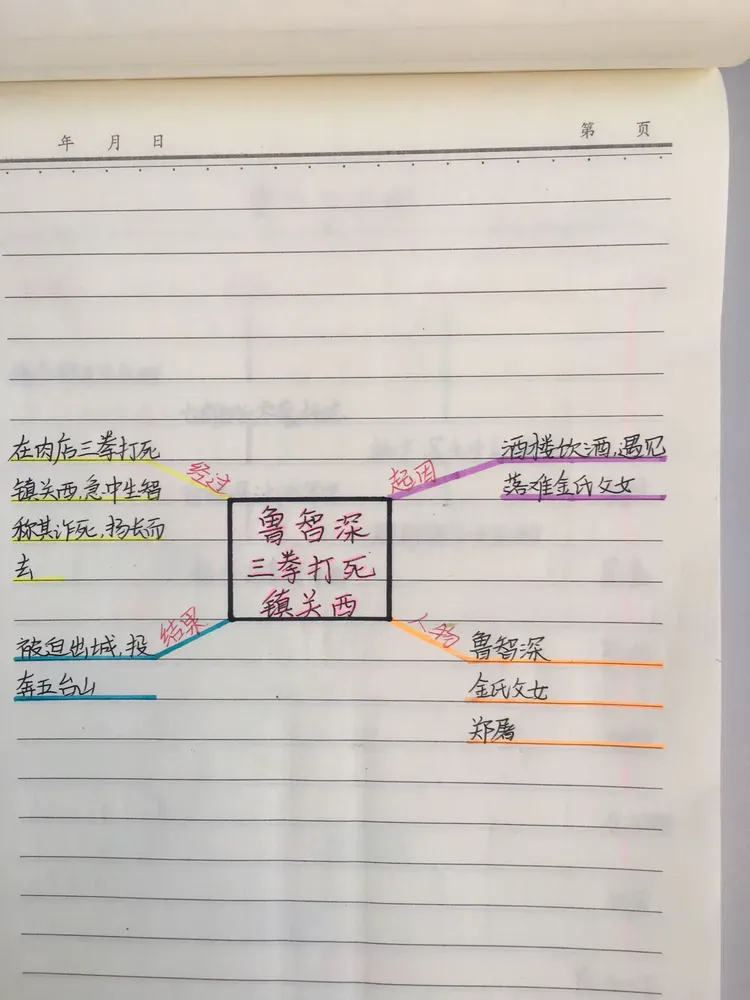 年 月 日
第 页
在肉店三拳打死
镇关西,急中生智
称其诈死,扬长而
去
经过
起因
酒楼饮酒,遇见
落难金氏父女
鲁智深
三拳打死
镇关西
结果
被迫出城,投
奔五台山
人物
鲁智深
金氏父女
郑屠